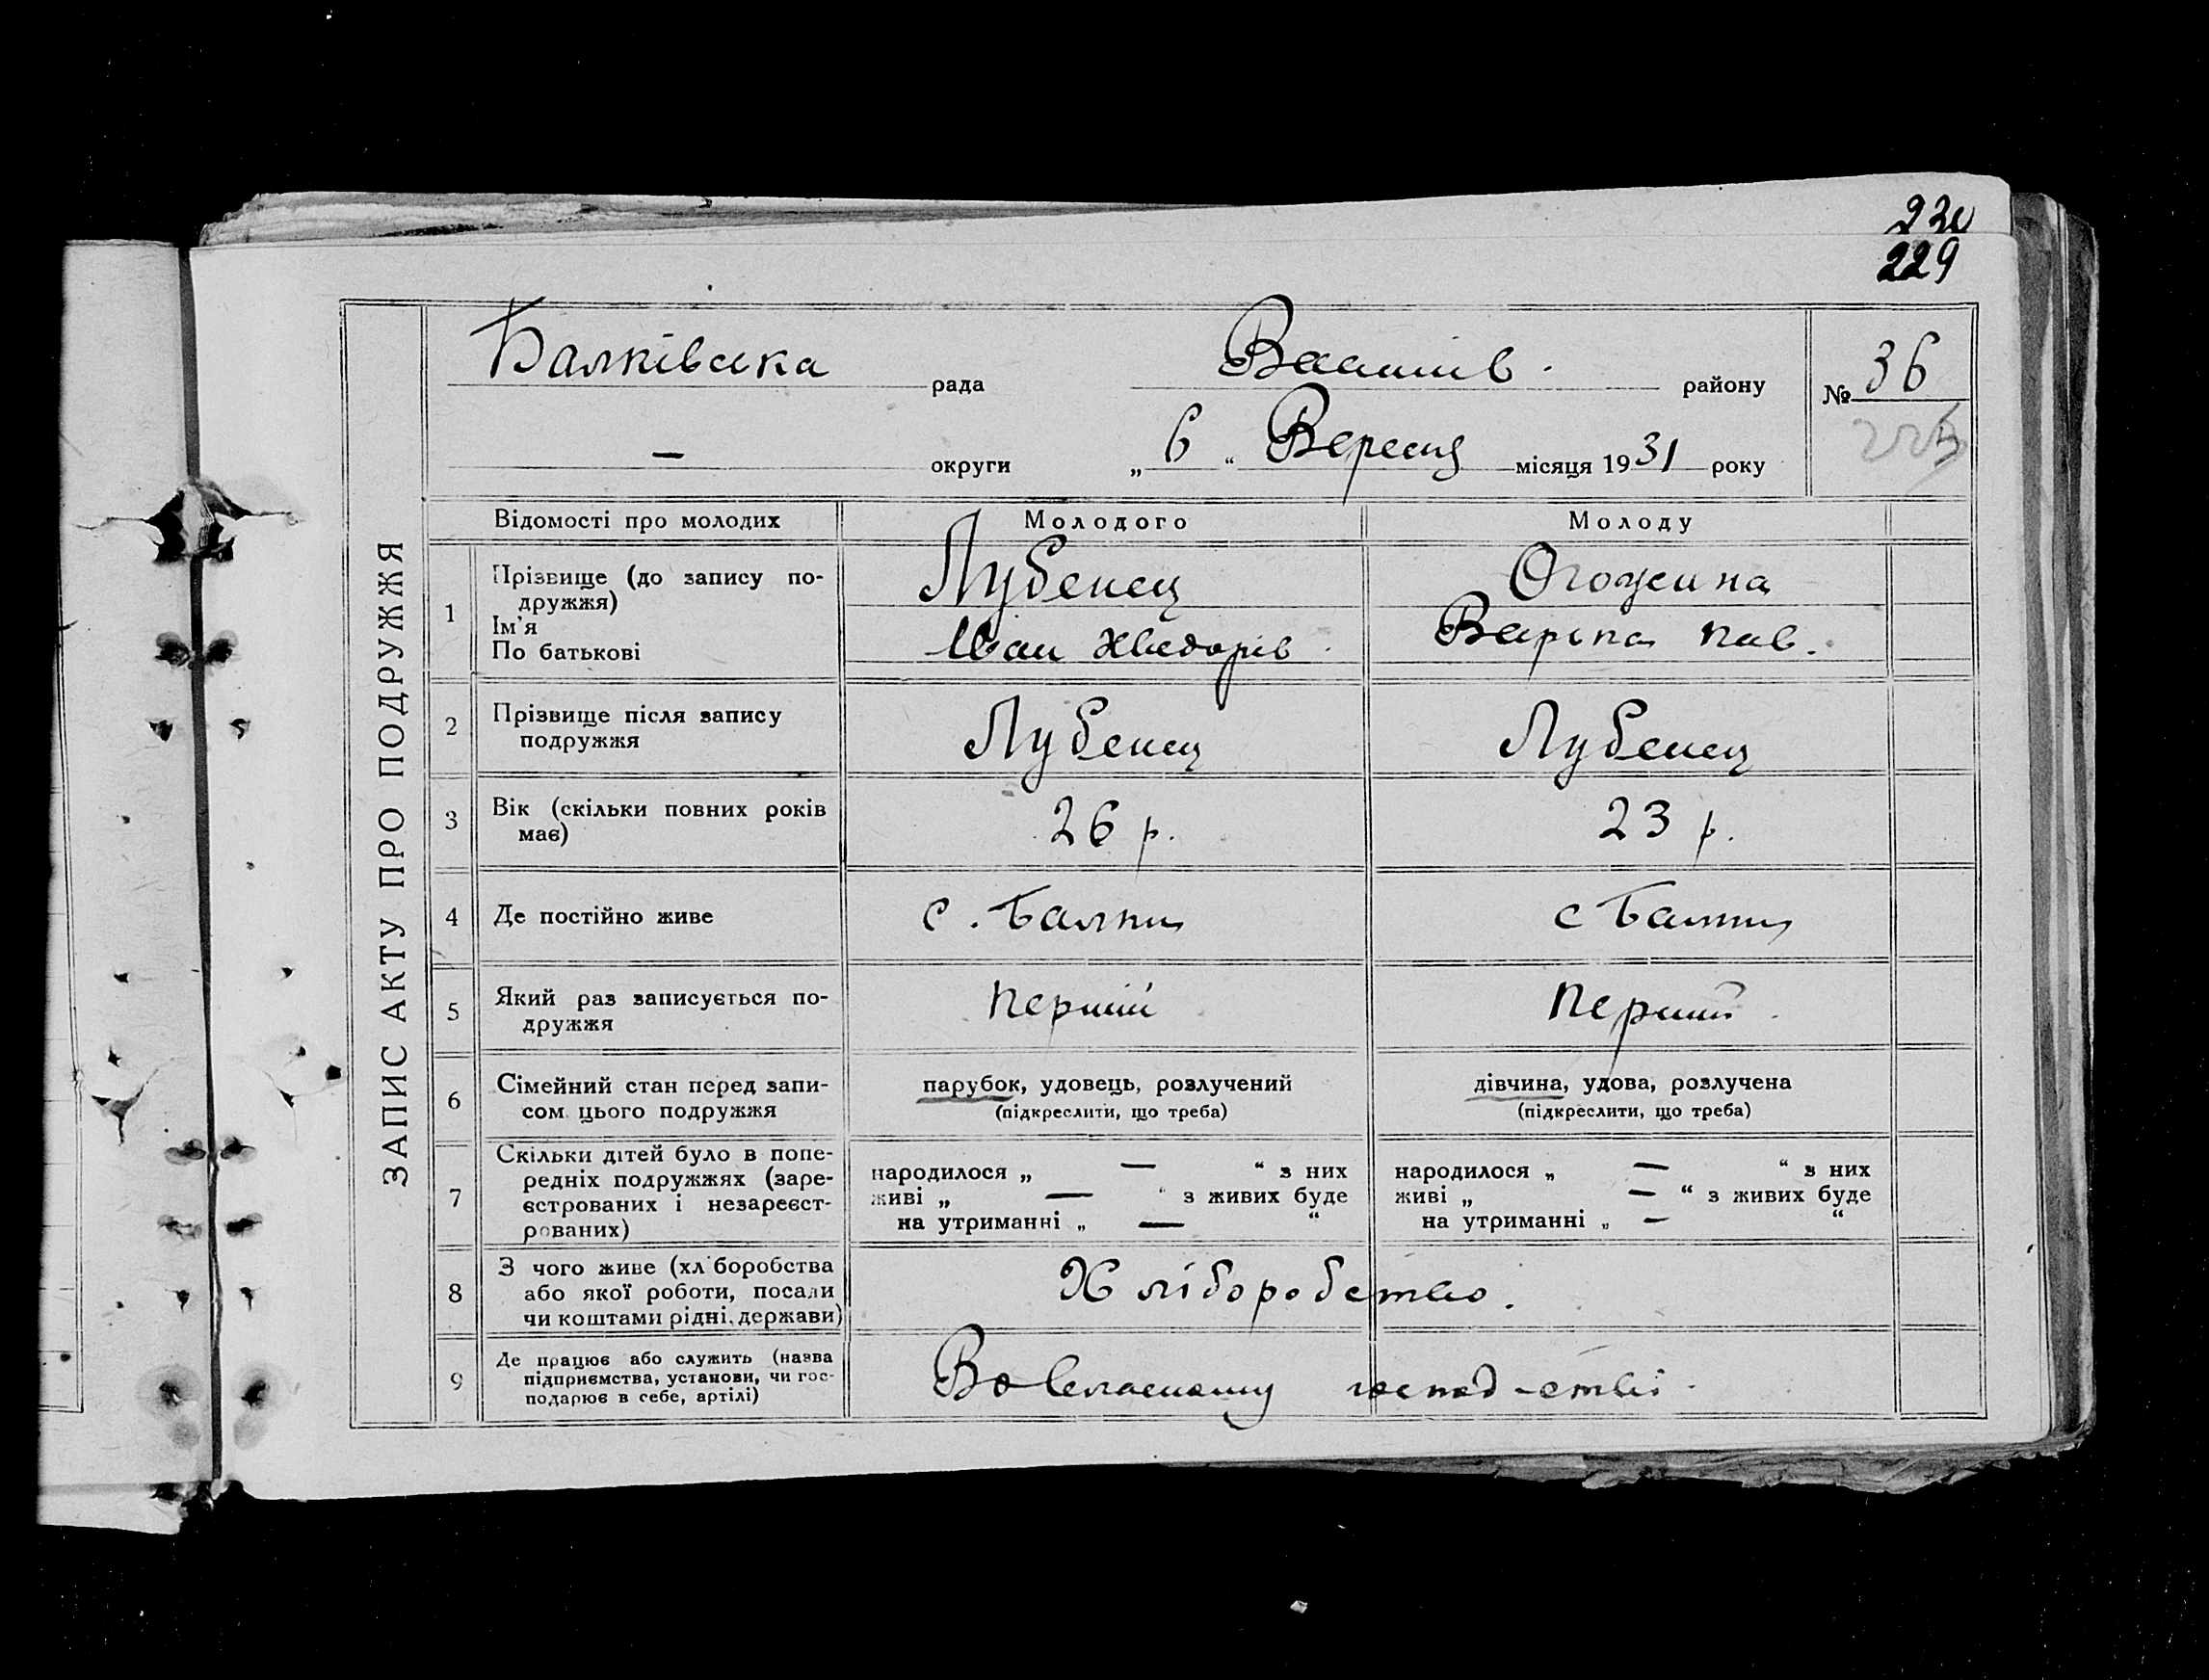 230
229
Балківська рада Василів. району № 36
— округи „ 6 “ Вересня місяця 1931 року
225
ЗАПИС АКТУ ПРО ПОДРУЖЖЯ
Відомості про молодих Молодого Молоду
1 Прізвище (до запису по-
дружжя)
Ім'я
По батькові
Лубенец
Іван Хведорів
Огожина
Варька Пав.
2 Прізвище після запису
подружжя
Лубенец
Лубенец
3 Вік (скільки повних років
має)
26 р.
23 р.
4 Де постійно живе с. Балки с Балки
5 Який раз записується по-
дружжя
перший
перший
6 Сімейний стан перед запи-
сом цього подружжя
парубок, удовець, розлучений
(підкреслити, що треба)
дівчина, удова, розлучена
(підкреслити, що треба)
7 Скільки дітей було в попе-
редніх подружжях (заре-
єстрованих і незареєст-
рованих)
народилося „ — “ з них
живі „ — “ з живих буде
на утриманні „ — “
народилося „ — “ з них
живі „ — “ з живих буде
на утриманні „ — “
8 З чого живе (хліборобства
або якої роботи, посади
чи коштами рідні, держави)
Хліборобство.
9 Де працює або служить (назва
підприємства, установи, чи гос-
подарює в себе, артілі)
Во власному господ-стві